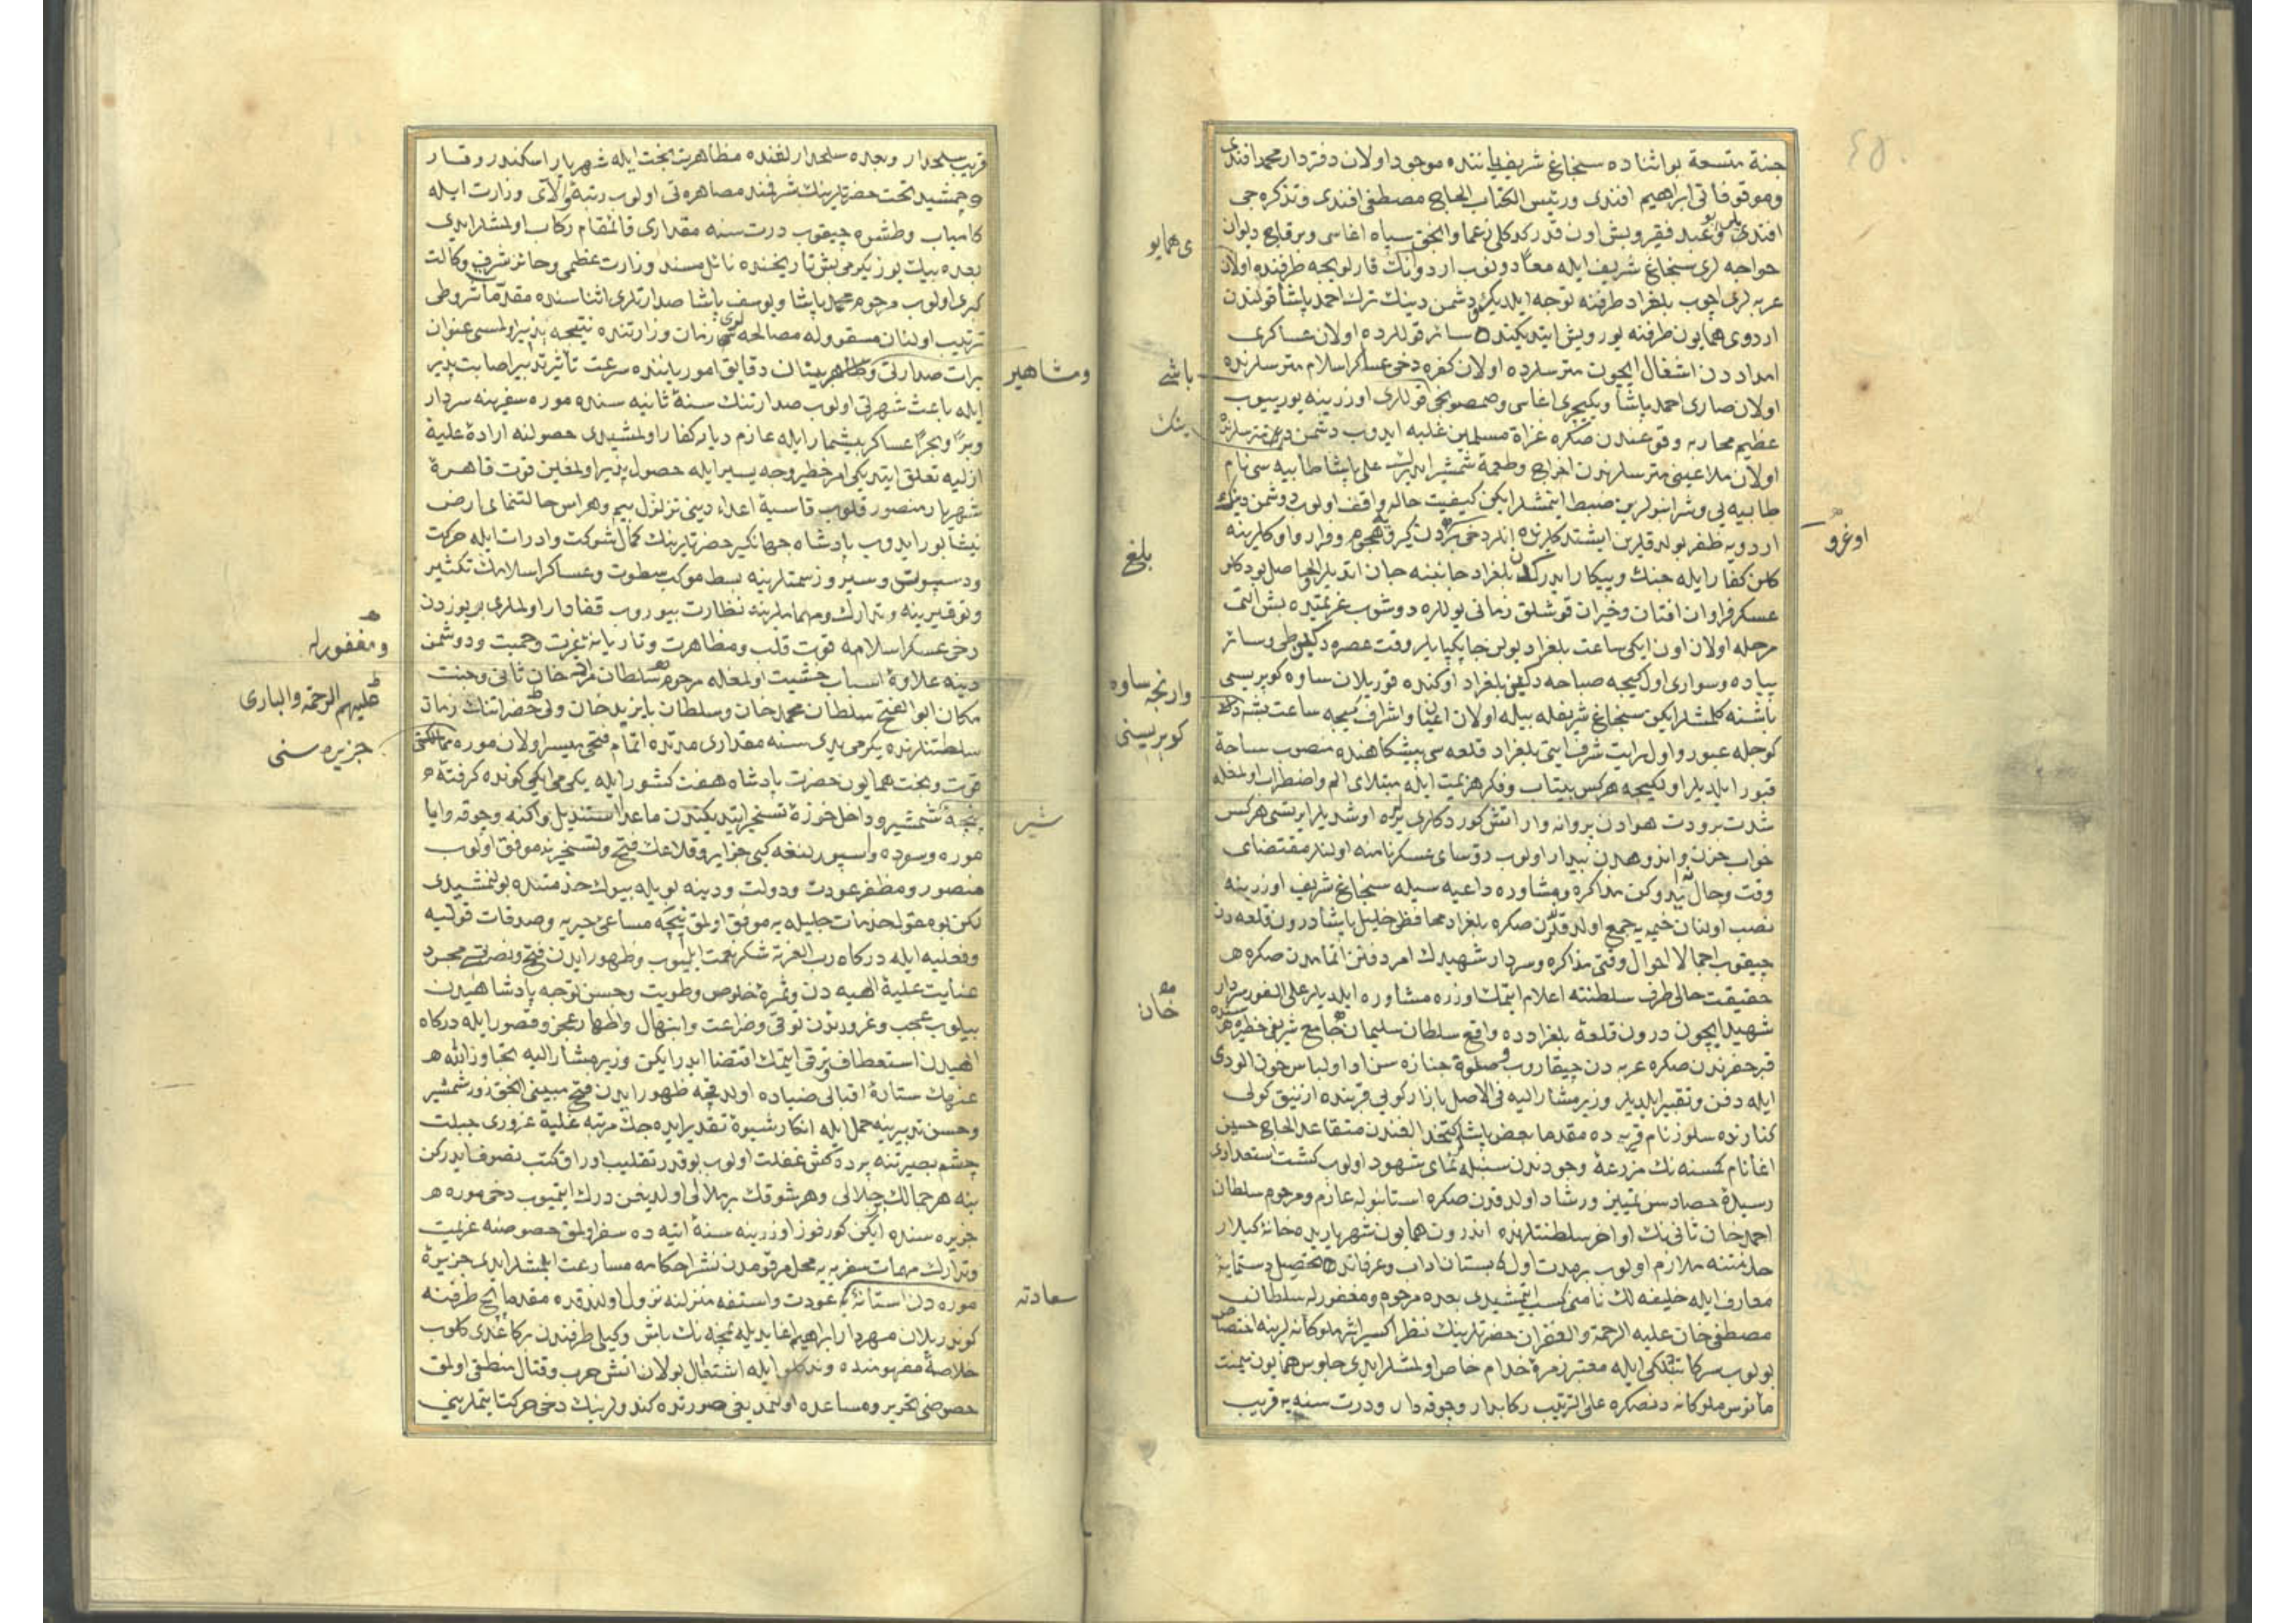 جنة متسعة بواثناده سنجاغ شریف یاننده موجود اولان دفتردار محمد افندی
وموقوفاتی ابراهیم افندی ورئیس الکتاب الحاج مصطفی افندی وتذکره جی
افندیلر وعبد فقیر وبش اون قدر کدکلی زعما وانجق سپاه اغاسی وبر قاچ دیوان
ی همایو
خواجه لری سنجاغ شریف ایله معاً دونوب اردونك قارلویجه طرفنده اولان
عربه لری اچوب بلغراد طرفنه توجه ایلدیکر دشمن دینك ترك احمد پاشا قولندن
اردوی همایون طرفنه یورویش ایتدیکنده سائر قوللرده اولان عساکری
امداددن اشغال ایچون متر سلرده اولان کفره دخی عساکر اسلام متر سلرنده
باشی
اولان صاری احمد پاشا ویکیچری اغاسی وصمصونجی قوللری اوزرینه یورییوب
عظیم محاربه وقوعندن صکره غزاة مسلمین غلبه ایدوب دشمن دین متر سلرنده
ینك
اولان ملاعینی متر سلرندن اخراج وطعمهٔ شمشیر ایدرك علی پاشا طابیه سی نام
طابیه یی وشرانپولرین ضبط ایتمشلر ایکن کیفیت حاله واقف اولوب دوشمن دینك
اردویه ظفر بولدقلرین ایشتدکلرنده انلر دخی بردن کیرو هجوم وفرار واوکلرینه
اوغرو
کلن کفار ایله جنك وپیکار ایدرك بلغراد جانبنه جان اتدیلر الحاصل بودکلو
بلغ
عسکر فراوان افتان وخیزان قوشلق زمانی یوللره دوشوب عزیمتیده بش التی
مرحله اولان اون ایکی ساعت بلغراد یولن جاپکپایلر وقت عصره دکین وطی وسائر
پیاده وسواری اول کیجه صباحه دکین بلغراد اوکنده قوریلان ساوه کوپریسی
وارنجه ساوه
کوپریسینی
باشنه کلمشلر ایکن سنجاغ شریفله بیله اولان اعیان واشراف کیجه ساعت بشده
کوجله عبور واول رایت شرف ایتی بلغراد قلعه سی پیشکاهنده منصوب ساحهٔ
قبور ایلدیلر اولکیجه هرکس بیتاب وفکر هزیمت ایله مبتلای الم واضطراب اولمغله
شدت برودت هوادن پروانه وار اتش کوردکلری یره اوشدیلر ایرتسی هرکس
خواب حزن واندوهدن بیدار اولوب رؤسای عسکر نامنه اولنلر مقتضای
وقت وحال ندوکن مذاکره ومشاوره داعیه سیله سنجاغ شریف اوزرینه
نصب اولنان خیمه یه جمع اولدقدن صکره بلغراد محافظی خلیل پاشا درون قلعه دن
چیقوب اجمالا احوال وقتی مذاکره وسردار شهیدك امر دفنن اتمامدن صکره
حقیقت حالی طرف سلطنته اعلام ایتمك اوزره مشاوره ایلدیلر علی الفور سردار
شهید ایچون درون قلعهٔ بلغرادده واقع سلطان سلیمان جامع شریفی حظیره سنده
خان
قبر حفرندن صکره عربه دن چیقاروب وصلوة جنازه سن ادا واولباس خون الودی
ایله دفن وتقبیر ایلدیلر وزیر مشار الیه فی الاصل بازار کویی قربنده ازنیق کولی
کنارنده سلوز نام قریه ده مقدما بعض پاشلر کتخدالغندن متقاعد الحاج حسین
اغا نام کمسنه نك مزرعهٔ وجودندن سنبله نمای شهود اولوب کشت استعدادی
رسیدهٔ حصاد سن تمییز ورشاد اولدقدن صکره استانبوله عازم ومرحوم سلطان
احمد خان ثانی نك اواخر سلطنتلرنده اندرون همایون شهریاریده خانهٔ کیلار
خدمتنه ملازم اولوب بر مدت اول بستان اداب وعرفاندن تحصیل دستمایهٔ
معارف ایله خلیفه لك نامنی کسب ایتمشیدی بعده مرحوم ومغفور له سلطان
مصطفی خان علیه الرحمة والغفران حضرتلرینك نظر اکسیر اثر ملوکانه لرینه اختصاص
بولوب سرکاتبلکی ایله معتبر زمرهٔ خدام خاص اولمشلر ایدی جلوس همایون میمنت
مأنوس ملوکانه دنصکره علی الترتیب رکابدار وچوقه دار ودرت سنه یه قریب
قریب سلحدار وبعده سلحدارلغنده مظاهرت بخت ایله شهریار اسکندر وقار
وجمشید تخت حضرتلرینك شرفمند مصاهرتی اولوب رتبهٔ والای وزارت ایله
کامیاب وطشره چیقوب درت سنه مقداری قائمقام رکاب اولمشلر ایدی
بعده بیك یوز یکرمی بش تاریخنده نائل مسند وزارت عظمی وحائز شرف وکالت
کبری اولوب مرحوم محمد پاشا ویوسف پاشا صدارتلری اثناسنده مقدما شروطی
ترتیب اولنان مسقو وله مصالحه لری زمان وزارتنده نتیجه پذیر اولمسی عنوان
برات صدارتی ومشاهیر بیشان دقایق امور یاننده سرعت تأثیر تدبیر اصابت پذیر
ومشاهیر
ایله باعث شهرتی اولوب صدارتنك سنهٔ ثانیه سنده موره سفرینه سردار
وبرًا وبحرًا عساکر بیشمار ایله عازم دیار کفار اولمشیدی حصولنه ارادهٔ علیهٔ
ازلیه تعلق ایتدیکی امر خطیر وجه یسیر ایله حصول پذیر اولمغین قوت قاهرهٔ
شهریار منصور قلوب قاسیهٔ اعداء دینی تزلزل بیم وهراس حالتنمای ارض
نیشابور ایدوب پادشاه جهانکیر حضرتلرینك کمال شوکت وادرات ایله حرکت
ودسپوتی وسیروز سمتلرینه بسط موکب سطوت وعساکر اسلامك تکثیر
وتوقیرینه وتدارك ومهماتلرینه نظارت بیوروب قفادار اولملری بر یوزدن
دخی عسکر اسلامه قوت قلب ومظاهرت وتازیانهٔ غیرت وحمیت ودوشمن
دینه علاوهٔ اسباب خشیت اولمغله مرحوم سلطان مراد خان ثانی وجنت
ومغفور له
مکان ابو الفتح سلطان محمد خان وسلطان بایزید خان ولی حضراتنك زمان
علیهم الرحمة والباری
سلطنتلرنده یکرمی یدی سنه مقداری مدتده اتمام فتحی میسر اولان موره
جزیره سنی
قوت وبخت همایون حضرت پادشاه هفت کشور ایله یکرمی ایکی کونده کرفتهٔ
پنجهٔ شمشیر وداخل حوزهٔ تسخیر ایتدیکندن ماعدا استندیل واکنه وچوقه وایا
شیر
موره وسوده واسپورلنغه کبی جزایر وقلاعك فتح وتسخیرینه موفق اولوب
منصور ومظفر عودت ودولت ودینه بویله بیوك خدمتنده بولنمشیدی
لکن بو مقوله خدمات جلیله یه موفق اولمق نیجه مساعی خیریه وصدقات قولیه
وفعلیه ایله درکاه رب العزته شکر نعمت ایلیوب وظهور ایدن فتح ونصرتی مجرد
عنایت علیهٔ الهیه دن وثمرهٔ خلوص وطویت وحسن توجه پادشاهیدن
بیلوب عجب وغروردن توقی وضراعت وابتهال واظهار عجز وقصور ایله درکاه
الهیدن استعطاف وترقی ایتمك اقتضا ایدر ایکن وزیر مشار الیه تجاوز الله
عنهك ستارهٔ اقبالی ضیاده اولدیغی ظهور ایدن فتح مبینی انجق زور شمشیر
وحسن تدبیرینه حمل ایله انکار شیوهٔ تقدیر ایده جك مرتبه غلبهٔ غروری جبلت
چشم بصیرتنه پرده کش غفلت اولوب بوقدر تقلیب اوراق کتب تصوف ایدرکن
ینه هر جمالك جلالی وهر شوقك بر ملالی اولدیغن درك ایتمیوب دخی موره
جزیره سنده ایکن کورفوز اوزرینه سنهٔ اتیه ده سفر اولمق خصوصنه عزیمت
وتدارك مهمات سفریه یه محل مرقومدن نشر احکامه مسارعت ایلمشلر ایدی جزیرهٔ
موره دن استانهٔ عودت واستفه منزلنه نزول اولندقده مقدما نمچه طرفنه
سعادته
کوندریلان مهردار ابراهیم اغا یدیله نمچه نك باش وکیلی طرفندن بر کاغدی کلوب
خلاصهٔ مفهومنده وندکلو ایله اشتعال بولان اتش حرب وقتال منطفی اولمق
خصوصنی تحریر ومساعده اولنمدیغی صورتده کندولرینك دخی حرکت ایتملرینی